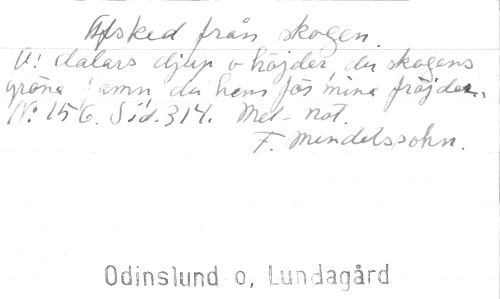 Afsked från skogen.
O! dalars djup o höjder, du skogens
gröna famn, du hem för mina fröjder..
No 156. Sid. 314. Mel- not.
F. Mendelssohn.
Odinslund o, Lundagård